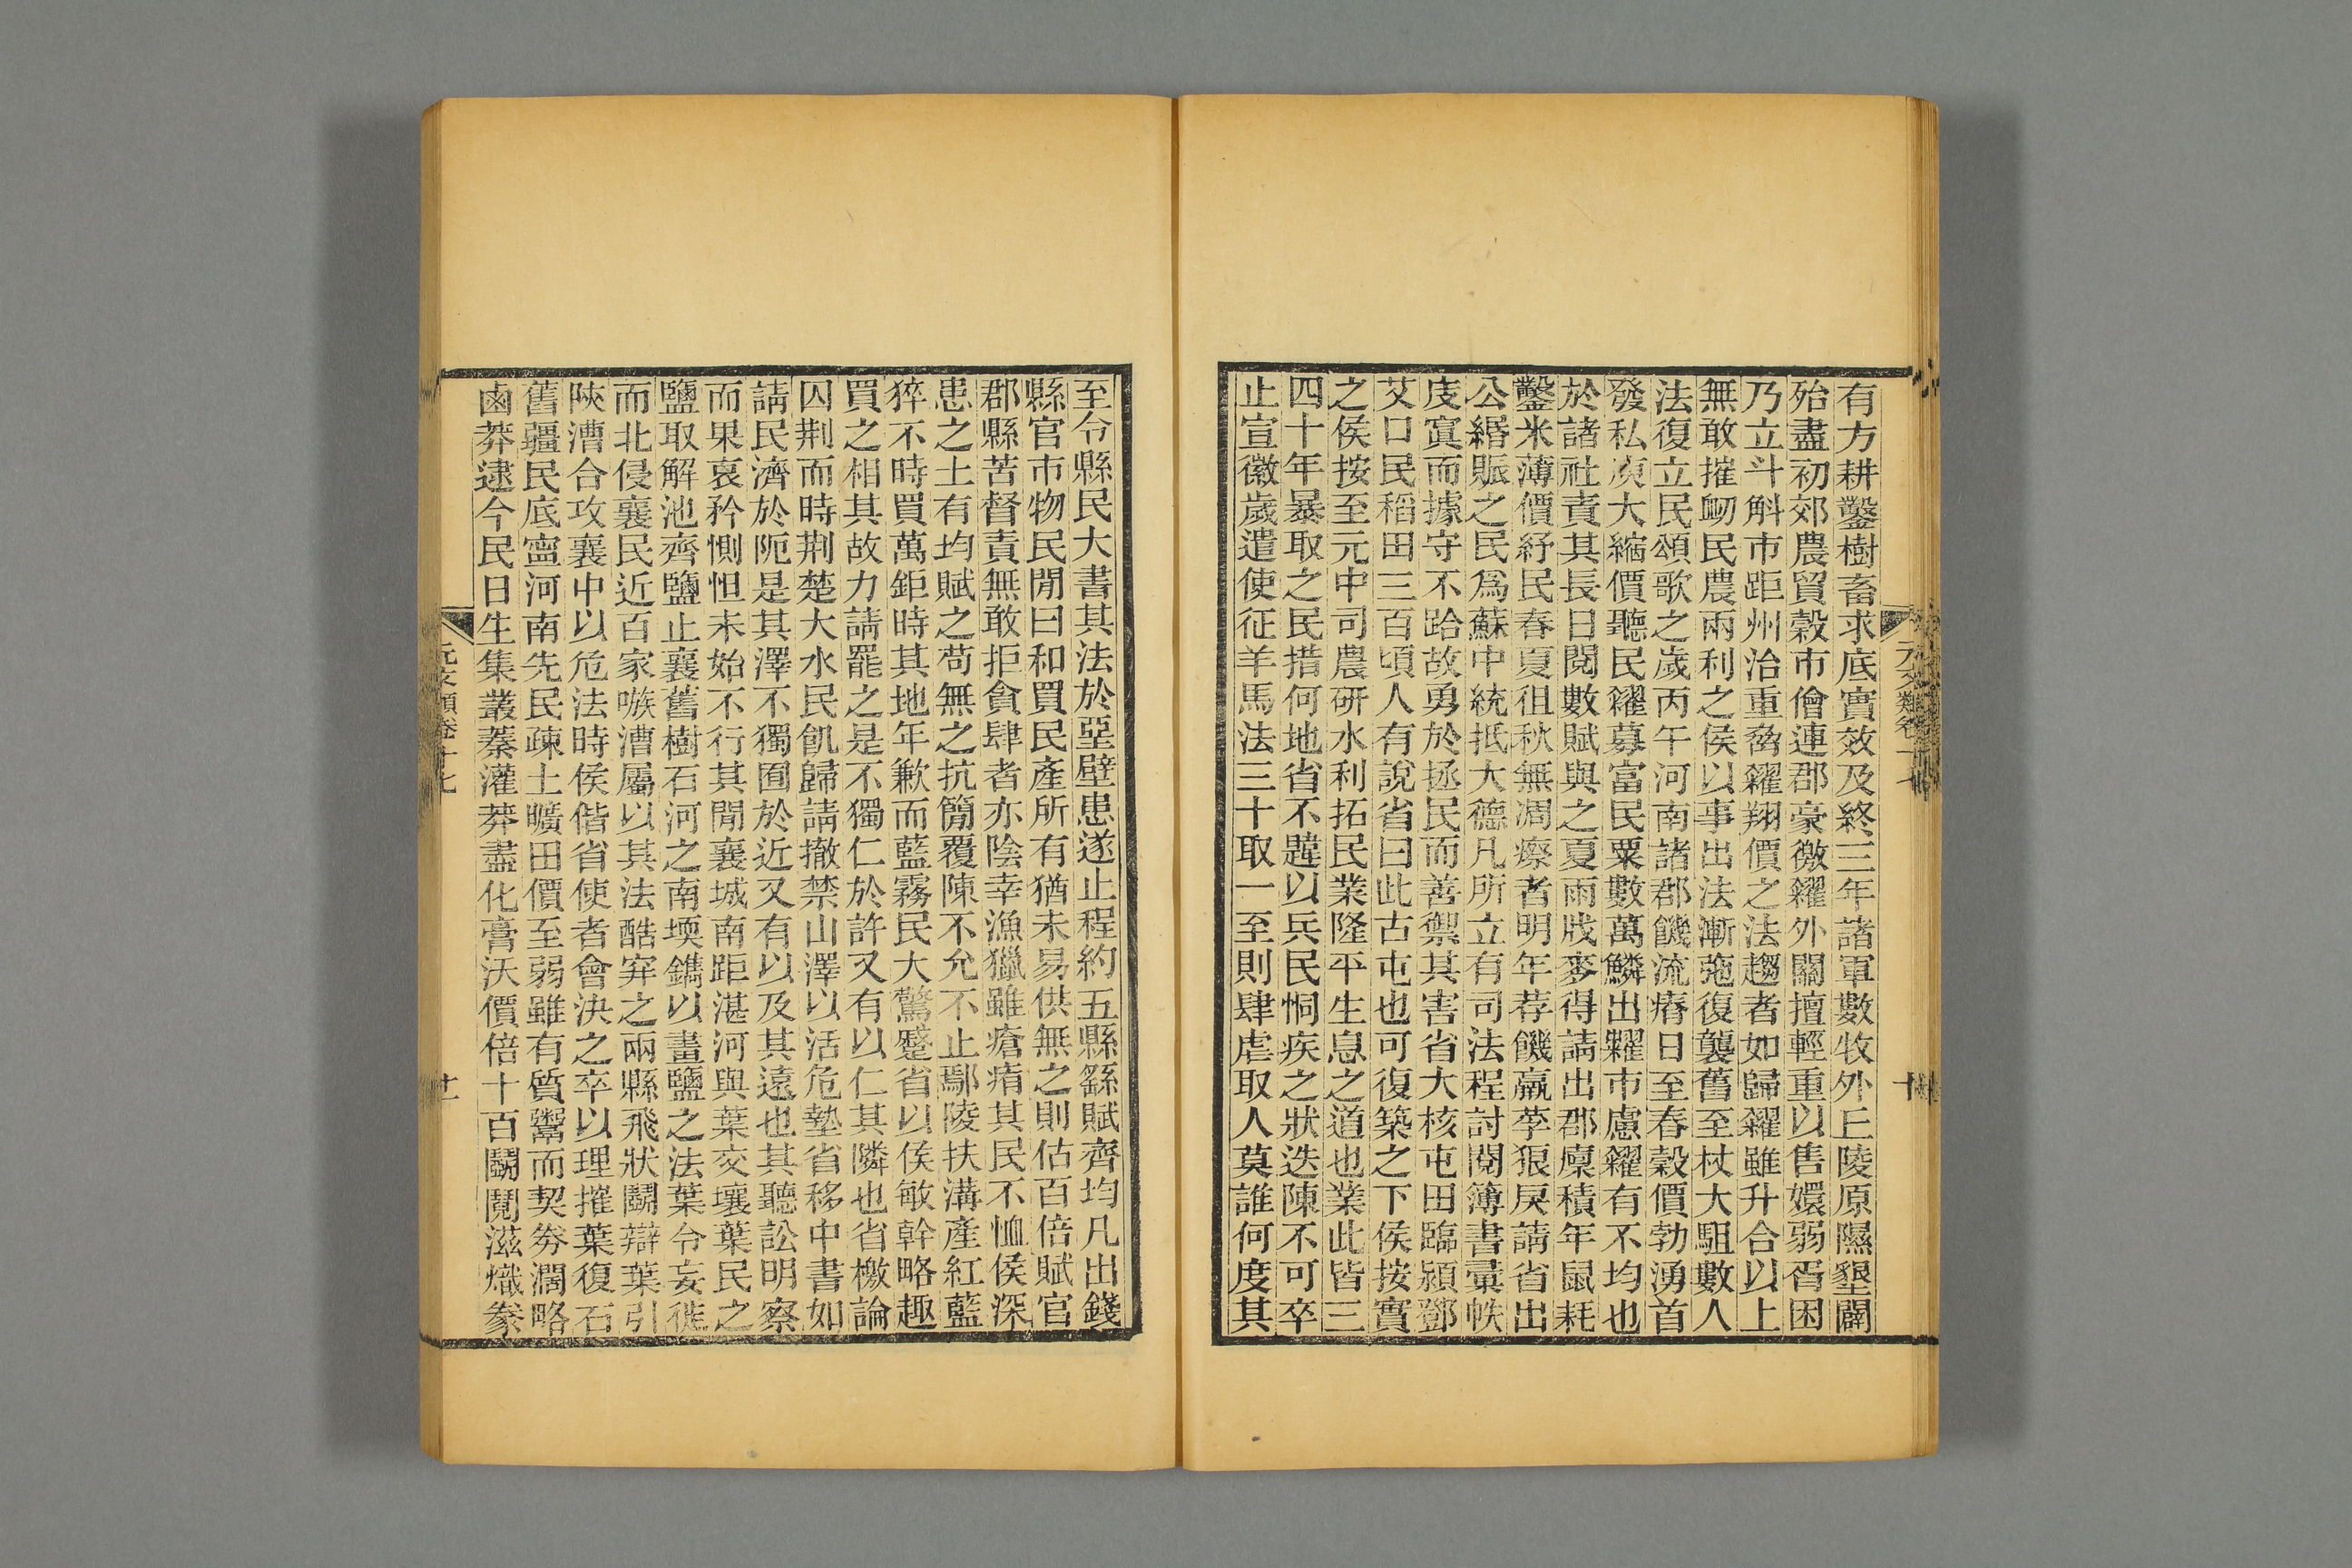 有方耕鑿樹畜求底實效及終三年諸軍數牧外丘陵原隰墾闢
殆盡初郊農貿穀市儈連郡豪微糴外關擅輕重以售嬛弱胥困
乃立斗斛市距州治重𠡠糴翔價之法趨者如歸糴雖升合以上
無敢摧衂民農兩利之侯以事出法漸弛復襲舊至杖大駔數人
法復立民頌歌之歲丙午河南諸郡饑流瘠日至春穀價勃湧首
發私庾大縮價聽民糴募富民粟數萬鱗出糶市慮糴有不均也
於諸社責其長日閱數賦與之夏雨戕麥得請出郡廪積年鼠耗
鑿米薄價紓民春夏徂秋無凋瘵者明年荐饑羸莩狠戾請省出
公緡賑之民爲蘇中統抵大德凡所立有司法程討閱簿書彚帙
庋寘而據守不跲故勇於拯民而善禦其害省大核屯田臨潁鄧
艾口民稻田三百頃人有說省曰此古屯也可復築之下侯按實
之侯按至元中司農研水利拓民業隆平生息之道也業此皆三
四十年暴取之民措何地省不韙以兵民恫疾之狀迭陳不可卒
止宣徽歲遣使征羊馬法三十取一至則肆虐取人莫誰何度其
元文類卷十七 十
至令縣民大書其法於堊壁患遂止程約五縣繇賦齊均凡出錢
縣官市物民閒曰和買民產所有猶未易供無之則估百倍賦官
郡縣苦督責無敢拒貪肆者亦陰幸漁獵雖瘡痏其民不恤侯深
患之土有均賦之苟無之抗簡覆陳不允不止鄢陵扶溝產紅藍
猝不時買萬鉅時其地年歉而藍霧民大驚蹙省以侯敏幹略趣
買之相其故力請罷之是不獨仁於許又有以仁其隣也省檄論
囚荆而時荆楚大水民飢歸請撤禁山澤以活危墊省移中書如
請民濟於阨是其澤不獨囿於近又有以及其遠也其聽訟明察
而果哀矜惻怛未始不行其閒襄城南距湛河與葉交壤葉民之
鹽取解池齊鹽止襄舊樹石河之南堧鐫以畫鹽之法葉令妄徙
而北侵襄民近百家嗾漕屬以其法酷穽之兩縣飛狀鬬辯葉引
陝漕合攻襄中以危法時侯偕省使者會決之卒以理摧葉復石
舊疆民底寧河南先民疎土曠田價至弱雖有質鬻而契劵濶略
鹵莽逮今民日生集叢蓁灌莽盡化膏沃價倍十百鬬鬩滋熾叅
元文類卷十七 十一